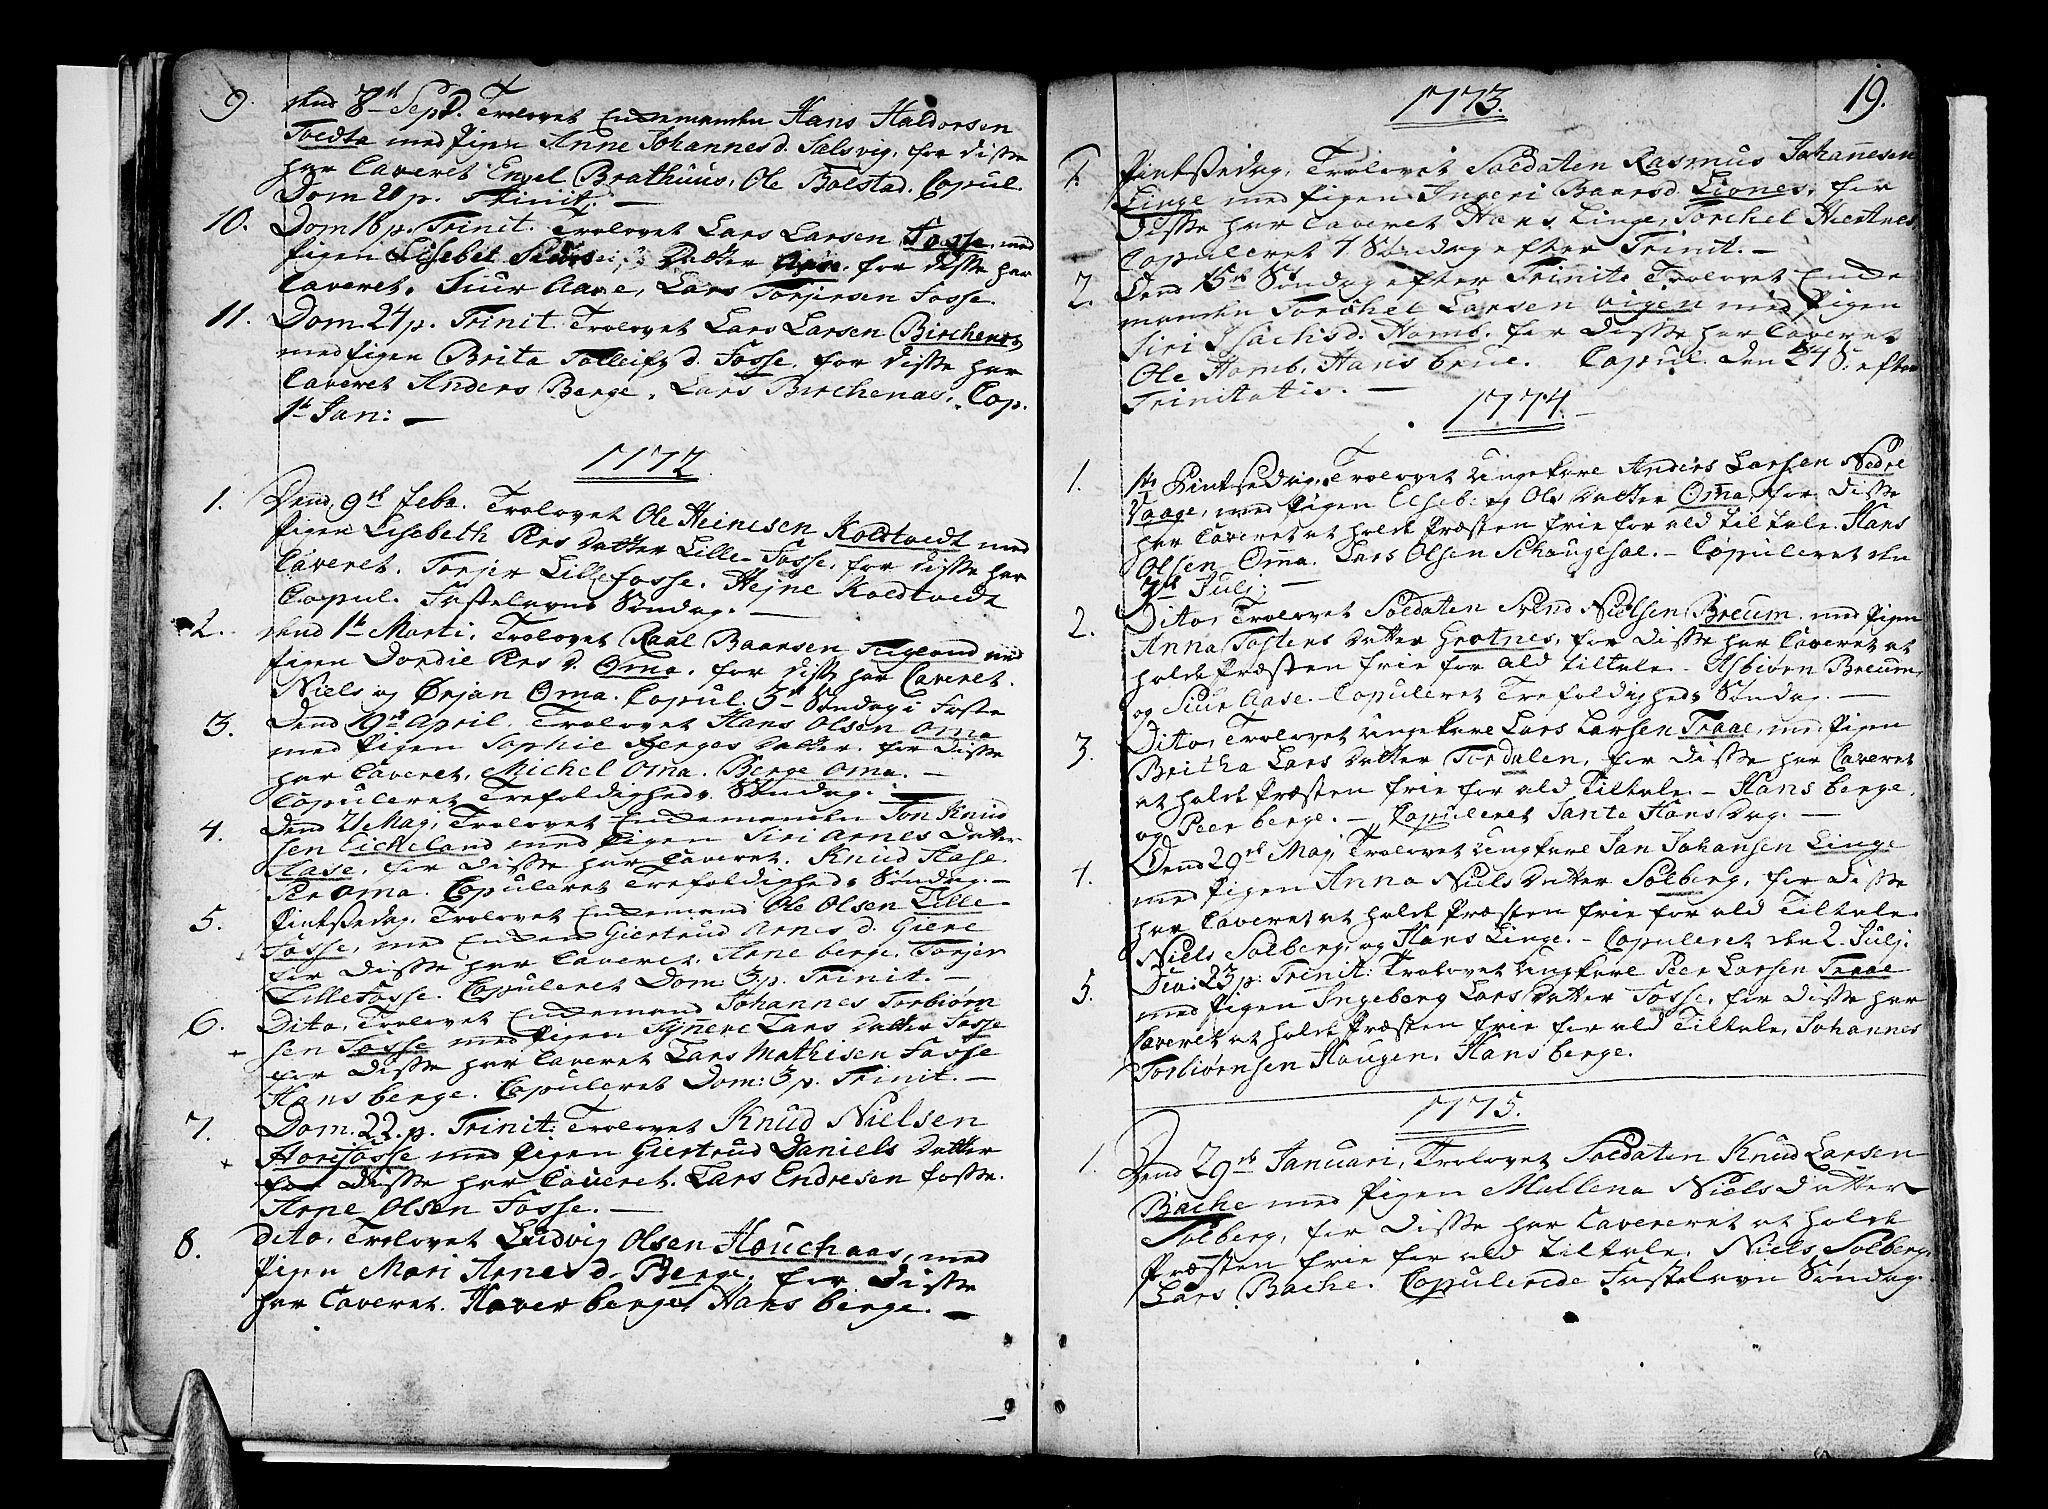 9. dend 8de Sept. Trolovet Enckemanden Hans Haldorsen
Tvedta med Pigen Anne Johannesd. Salsvig, for disse
har Caveret Engel Brathuus, Ole Bolstad. Copul.
Dom 20 p. Trinit. —
10. Dom 18 p. Trinit. Trolovet Lars Larsen Fosse, med
Pigen Lisebet Datter for disse har
Caveret, Siur Aase, Lars Torjersen Fosse.
11. Dom. 24 p. Trinit. Trolovet Lars Larsen Birchenes
med Pigen Brita Tolleifs d. Fosse, for disse har
Caveret Anders Berge, Lars Birchenæs, Cop.
1st Jan: —
1772
1. Dend 9de Febr. Trolovet Ole Heinesen Koldtvedt med
Pigen Lisebeth Pers Datter Lille-Fosse, for disse har
Caveret. Torjer Lillefosse. Hejne Koldtvedt
Copul. Fastelavns Søndag. —
2. dend 1st Marti. Trolovet Baarsen Teigland med
Pigen Dordie Pers D. Oma, for disse har Caveret.
Niels og Ørjan Oma. Copul. 3de Søndag i Faste
3. Dend 19de April. Trolovet Hans Olsen Oma
med Pigen Sophie Berges Datter. for Disse
har Caveret, Michel Oma. Berge Oma. —
Copuleret Trefoldigheds Søndag. —
4. Dend 21 Maj, Trolovet Enckemanden Jon Knud
sen Eickeland med Pigen Siri Arnes Datter
Aase, for Disse har Caveret. Knud Aase.
Per Oma. Copuleret Trefoldigheds Søndag. —
5. Pintsedag. Trolovet Enckemand Ole Olsen Lille-
Fosse, med Encken Giertrud Arnes d. Giere
for Disse har Caveret. Arne berge. Torjer
Lillefosse. Copuleret Dom 3 p. Trinit. —
6. Dito, Trolovet Enckemand Johannes Torbiørn
sen Fosse med Pigen Synneve Lars Datter Fosse
for Disse har Caveret Lars Mathisen Fosse
Hans berge. Copuleret Dom: 3 p. Trinit. —
7. Dom. 22. p. Trinit. Trolovet Knud Nielsen
med Pigen Giertrud Daniels Datter
for Disse har Caveret. Lars Endresen fosse.
Arne Olsen Fosse. —
8. Dito, Trolovet Ludvig Olsen Houchaas, med
Pigen Mari Arnesd. Berge, for Disse
har Caveret. Haver berge, Hans berge. —
1773. 19.
1. Pintsedag, Trolovet Soldaten Rasmus Johannesen
Linge med Pigen Ingeri Baarsd. Liones, for
Disse har Caveret Hans Linge, Torchel Hiertnes
Copuleret 7 Søndag efter Trinit. —
2. Dend 15de Søndag efter Trinite Trolovet Encke
manden Torchel Larsen Vigen med Pigen
Siri Isachsd. Homb. for Disse har Caveret
Ole Homb, Hans brue. Copul. Den 24 S. efter
Trinitatis. —
1774. —
1. 1te Pintsedag, Trolovet Ungekare Anders Larsen Nedre
Vaage, med Pigen Elseb: Ols Datter Oma, for Disse
har Caveret at holde Præsten frie for ald til tale. Hans
Olsen Oma. Lars Olsen Schaugesæl. — Copuleret den
Julj: —
2. Dito, Trolovet Soldaten Svend Nielsen Breum med Pigen
Anna Tostens Datter Grotnes, for Disse har Caveret at
holde Præsten frie for ald tiltale — Asbiørn Breum,
og Siur Aase. Copuleret Trefoldigheds Søndag. —
3. Dito, Trolovet Ungekare Lars Larsen Traae, med Pigen
Britha Lars Datter Tordalen, for Disse har Caveret
at holde Præsten frie for ald Tiltale. — Hans berge,
og Peer berge. — Copuleret Sante Hans Dag. —
4. Dend 29de Maj, Trolovet Ungkare Jan Johansen Linge
med Pigen Anna Niels Datter Solberg, for Disse
har Caveret at holde Præsten frie for ald Tiltale.
Niels Solberg, og Hans Linge. — Copuleret den 2. Julj.
5. 23 p: Trinit: Trolovet Ungkare Peer Larsen Traae
med Pigen Ingeberg Lars Datter Fosse, for Disse har
Caveret at holde Præsten frie for ald Tiltale, Johannes
Torbiørnsen Haugen, Hans berge.
1775.
1. Dend 29de Januari, Trolovet Soldaten Knud Larsen
Bache med Pigen Mallena Niels Datter
Solberg, for Disse har Cavereret at holde
Præsten frie for ald tiltale. Niels Solberg,
Lars Bache. Copulerede Fastelavn Søndag.